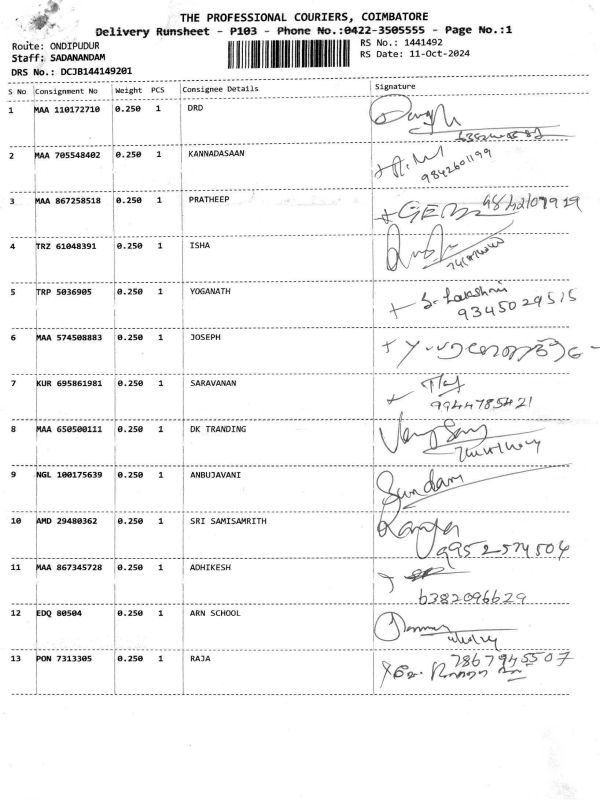 THE PROFESSIONAL COURIERS, COIMBATORE
Delivery Runsheet - P103 - Phone No.:0422-3505555 - Page No.:1
Route: ONDIPUDUR
RS No.: 1441492
Staff: SADANANDAM
RS Date: 11-Oct-2024
DRS No.: DCJB144149201
S No Consignment No Weight PCS Consignee Details Signature
1 MAA 110172710 0.250 1 DRD
2 MAA 705548402 0.250 1 KANNADASAAN
9842601199
3 MAA 867258518 0.250 1 PRATHEEP
4 TRZ 61048391 0.250 1 ISHA
5 TRP 5036905 0.250 1 YOGANATH S. Lakshmi
9345029515
6 MAA 574508883 0.250 1 JOSEPH
7 KUR 695861981 0.250 1 SARAVANAN
9944785421
8 MAA 650500111 0.250 1 DK TRANDING
9 NGL 100175639 0.250 1 ANBUJAVANI Sundari
10 AMD 29480362 0.250 1 SRI SAMISAMRITH
9952574504
11 MAA 867345728 0.250 1 ADHIKESH
6382096629
12 EDQ 80504 0.250 1 ARN SCHOOL
13 PON 7313305 0.250 1 RAJA 7867945507